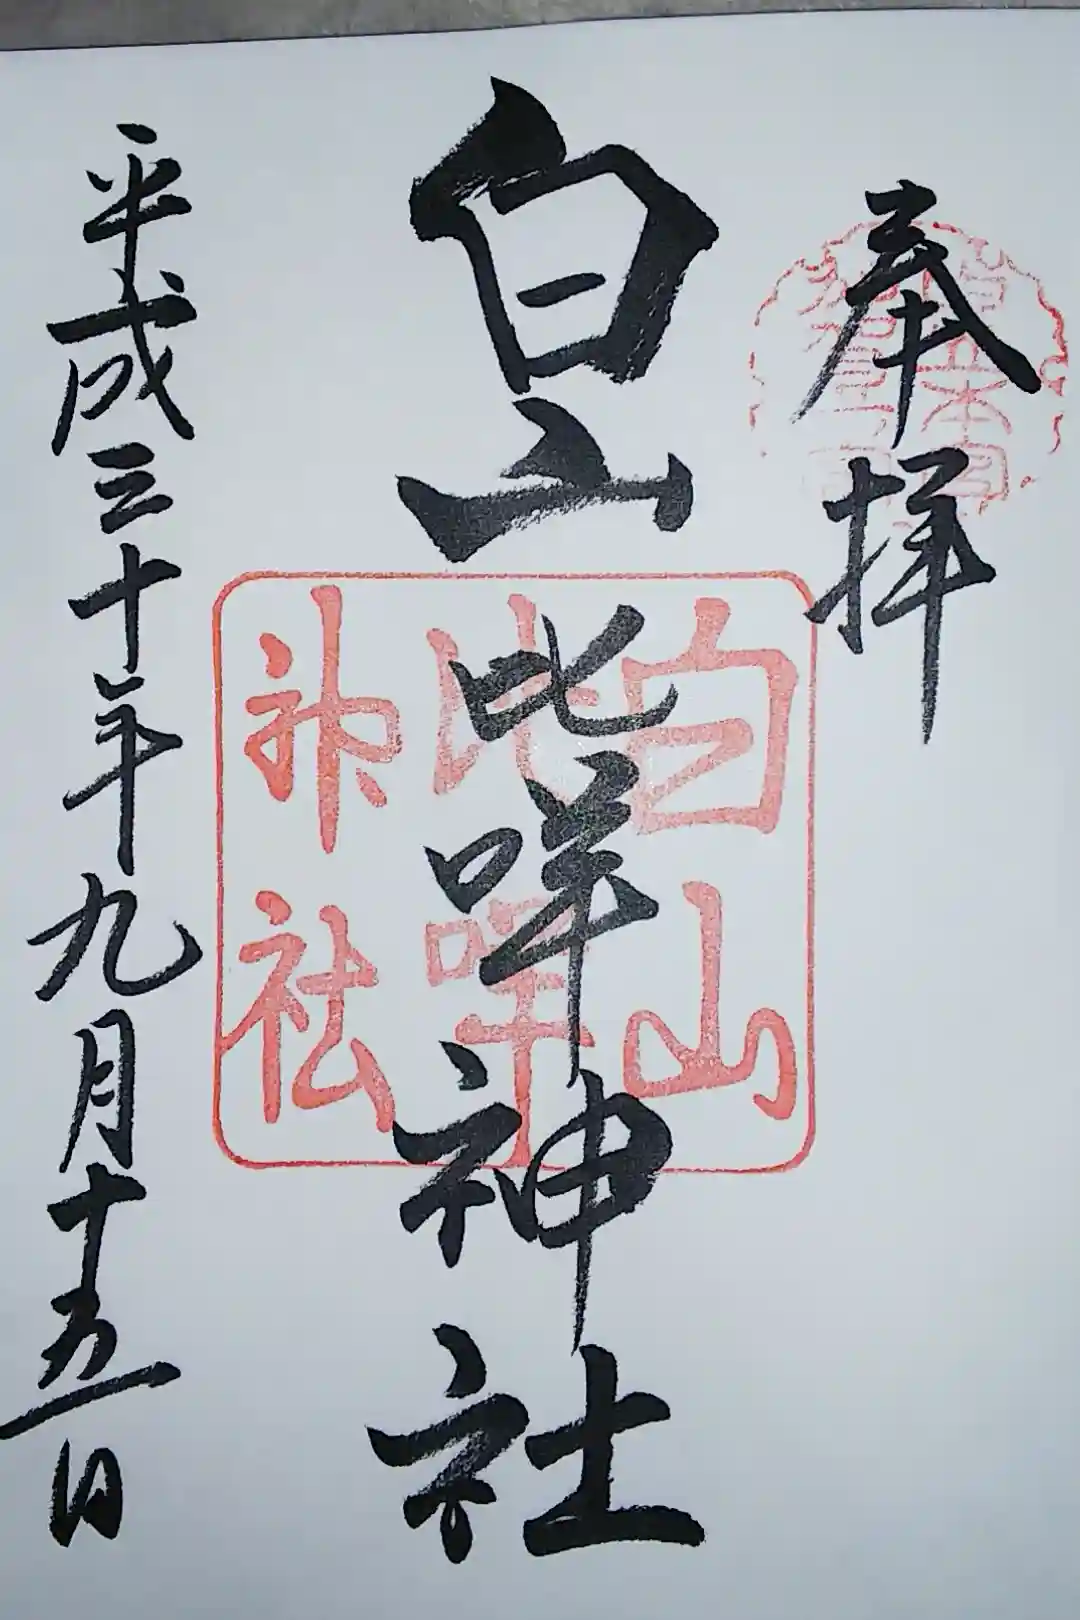 奉拝
白山比咩神社
平成三十年九月十五日
白山
比咩
神社